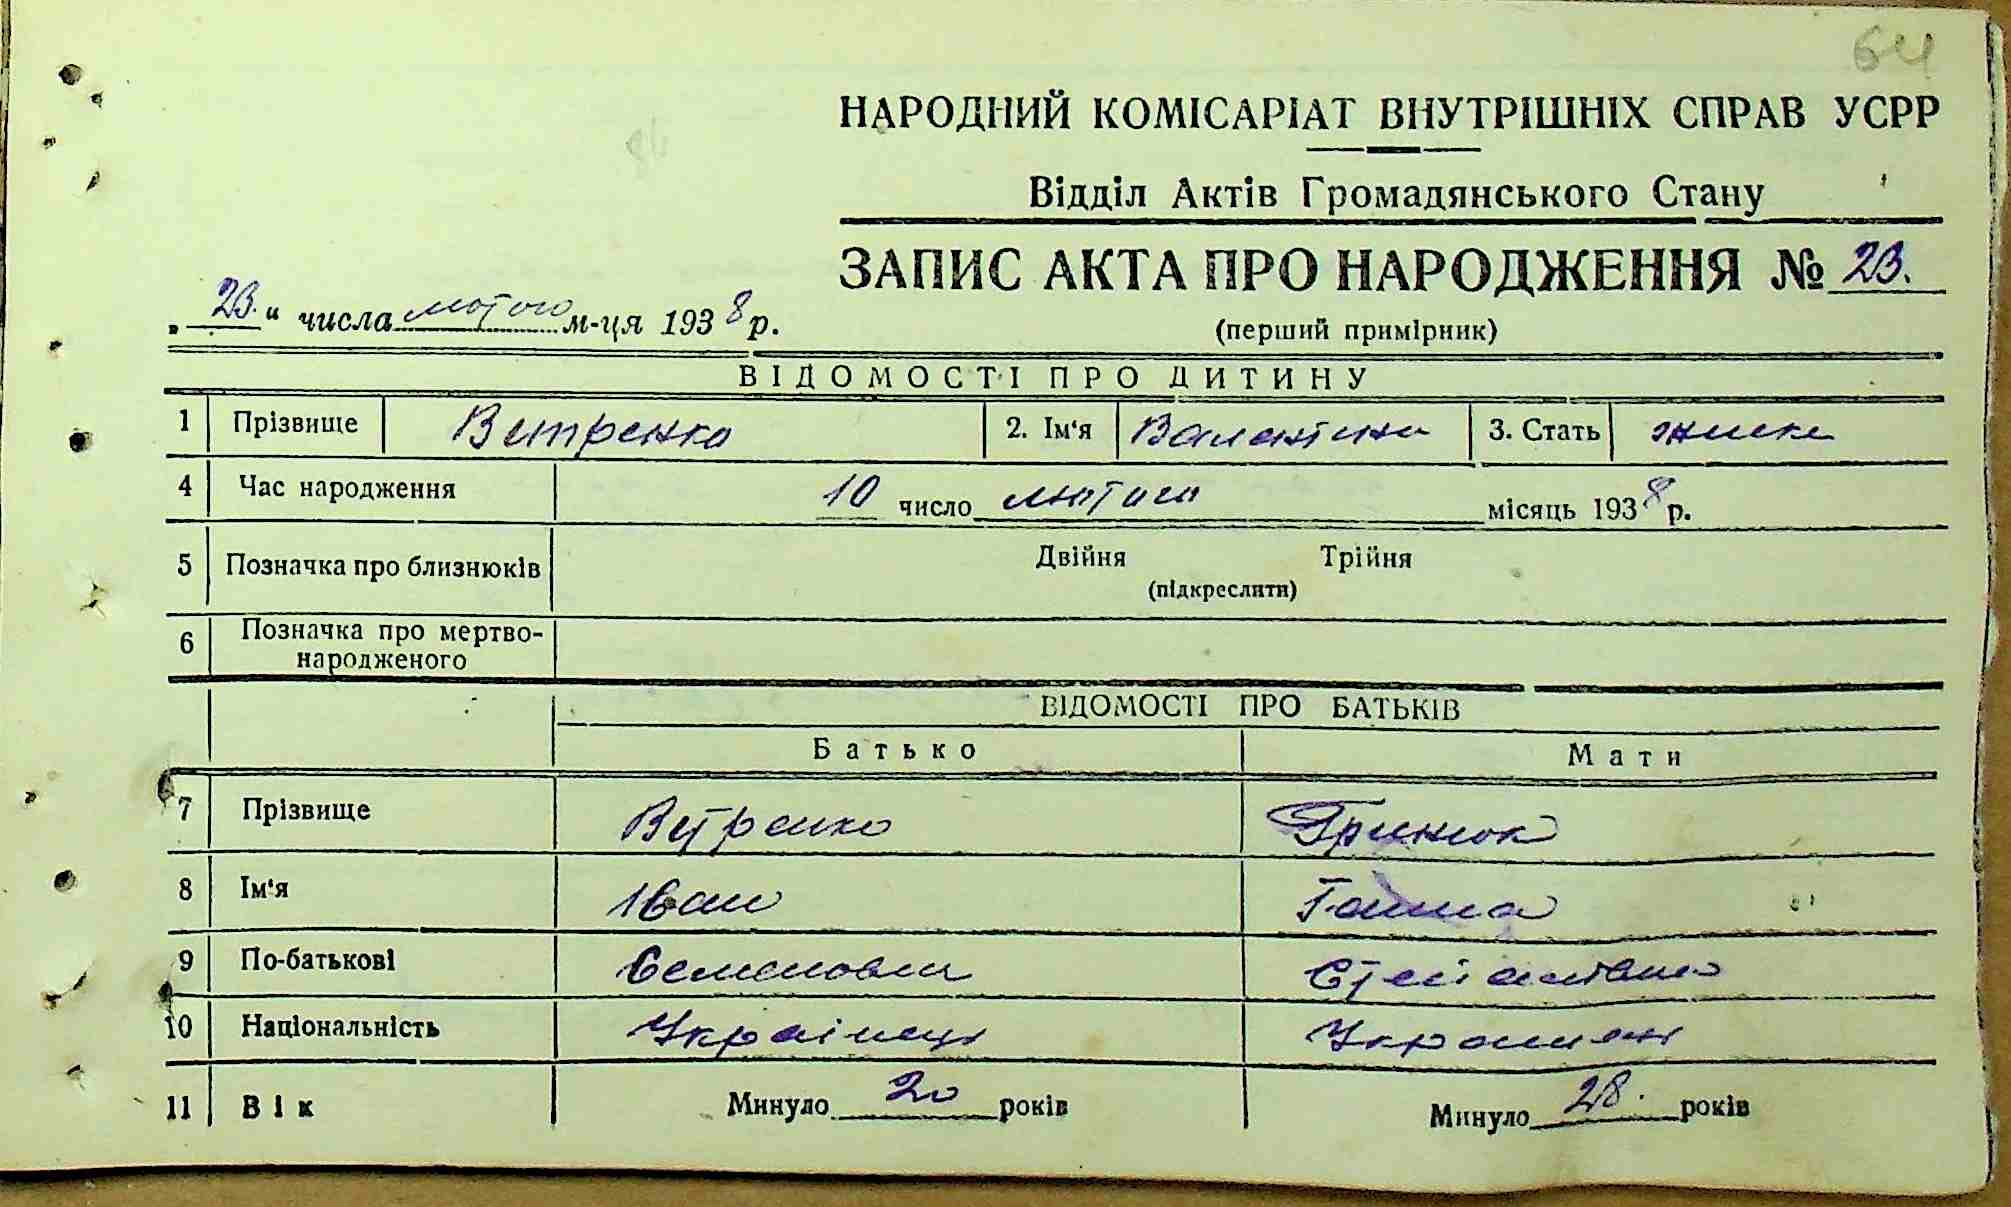 64
84
НАРОДНИЙ КОМІСАРІАТ ВНУТРІШНІХ СПРАВ УСРР
Відділ Актів Громадянського Стану
ЗАПИС АКТА ПРО НАРОДЖЕННЯ № 23.
„ 23. “ числа лютого м-ця 1938 р.
(перший примірник)
ВІДОМОСТІ ПРО ДИТИНУ
1 Прізвище Витренко 2. Ім‘я Валентина 3. Стать
4 Час народження 10 число лютого місяць 1938 р.
5 Позначка про близнюків Двійня Трійня
(підкреслити)
6 Позначка про мертво-
народженого
ВІДОМОСТІ ПРО БАТЬКІВ
Батько Мати
7 Прізвище Вітренко Гринюк
8 Ім‘я Іван Ганна
9 По-батькові Семенович Степанівна
10 Національність Українець
11 Вік Минуло 20 років Минуло 28. років